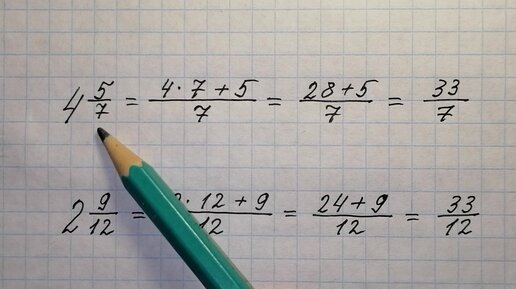 4 5/7 = (4·7+5)/7 = (28+5)/7 = 33/7
2 9/12 = ·12+9/12 = (24+9)/12 = 33/12